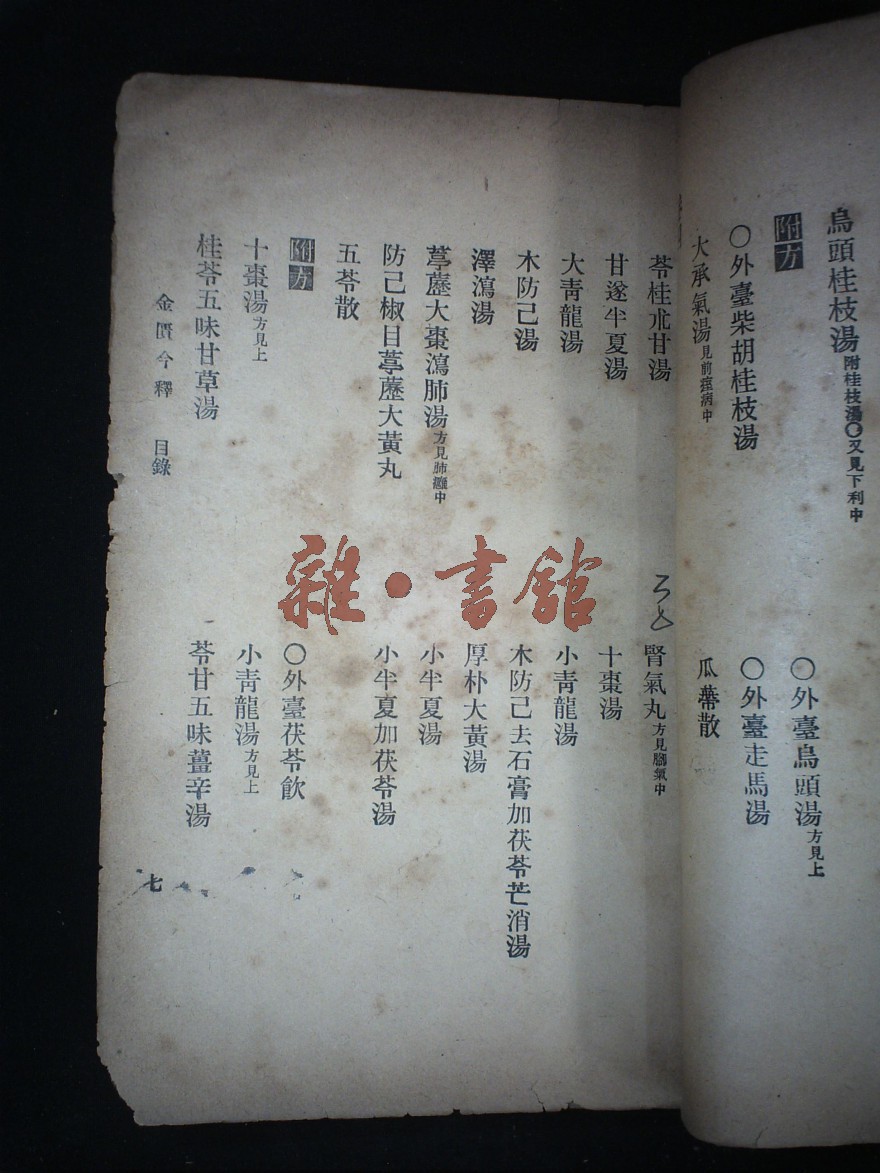 烏頭桂枝湯附桂枝湯〇又見下利中
〇外臺烏頭湯方見上
附方
〇外臺柴胡桂枝湯
〇外臺走馬湯
大承氣湯見前痙病中
瓜蒂散
苓桂朮甘湯
腎氣丸方見腳氣中
甘遂半夏湯
十棗湯
大靑龍湯
小靑龍湯
木防己湯
木防己去石膏加茯苓芒消湯
澤瀉湯
厚朴大黃湯
葶藶大棗瀉肺湯方見肺癰中
小半夏湯
防己椒目葶藶大黃丸
小半夏加茯苓湯
五苓散
附方
〇外臺茯苓飮
十棗湯方見上
小靑龍湯方見上
桂苓五味甘草湯
苓甘五味薑辛湯
金匱今釋 目錄
七
雜·書館